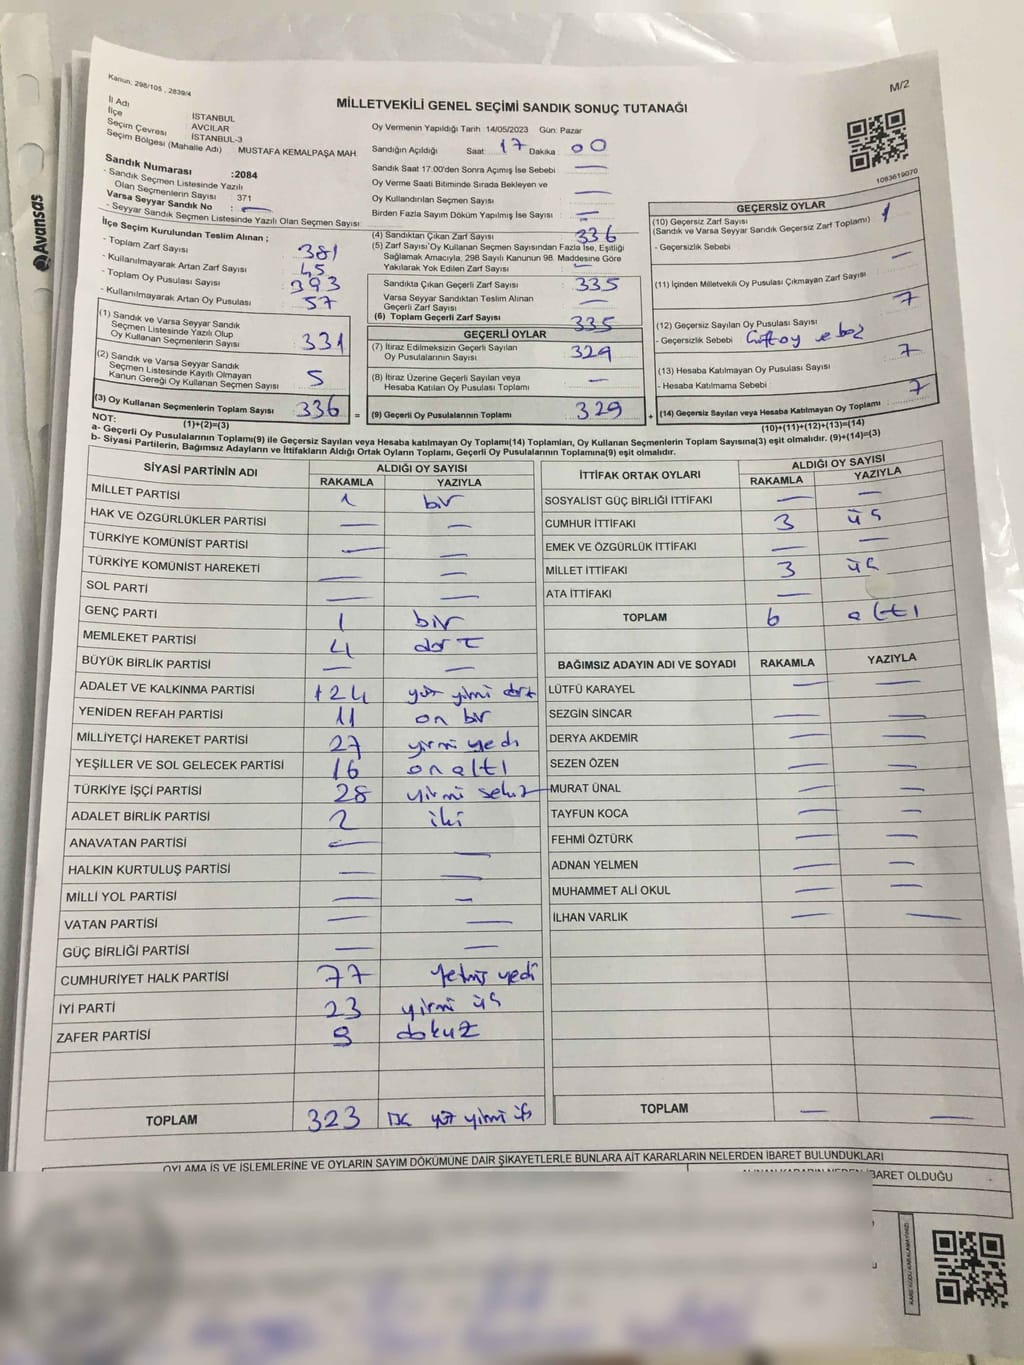 Kanun: 298/105 , 2839/4
M/2
MİLLETVEKİLİ GENEL SEÇİMİ SANDIK SONUÇ TUTANAĞI
İl Adı İSTANBUL
İlçe AVCILAR
Seçim Çevresi İSTANBUL-3
Seçim Bölgesi (Mahalle Adı) MUSTAFA KEMALPAŞA MAH.
Sandık Numarası :2084
- Sandık Seçmen Listesinde Yazılı
Olan Seçmenlerin Sayısı : 371
Varsa Seyyar Sandık No : —
- Seyyar Sandık Seçmen Listesinde Yazılı Olan Seçmen Sayısı :
İlçe Seçim Kurulundan Teslim Alınan ;
- Toplam Zarf Sayısı : 381
- Kullanılmayarak Artan Zarf Sayısı : 45
- Toplam Oy Pusulası Sayısı : 393
- Kullanılmayarak Artan Oy Pusulası : 57
(1) Sandık ve Varsa Seyyar Sandık
Seçmen Listesinde Yazılı Olup
Oy Kullanan Seçmenlerin Sayısı : 331
(2) Sandık ve Varsa Seyyar Sandık
Seçmen Listesinde Kayıtlı Olmayan
Kanun Gereği Oy Kullanan Seçmen Sayısı : 5
(3) Oy Kullanan Seçmenlerin Toplam Sayısı : 336
(1)+(2)=(3)
Oy Vermenin Yapıldığı Tarih 14/05/2023 Gün: Pazar
Sandığın Açıldığı Saat: 17 Dakika 00
Sandık Saat 17:00'den Sonra Açımış İse Sebebi —
Oy Verme Saati Bitiminde Sırada Bekleyen ve
Oy Kullandırılan Seçmen Sayısı —
Birden Fazla Sayım Döküm Yapılmış İse Sayısı : —
(4) Sandıktan Çıkan Zarf Sayısı : 336
(5) Zarf Sayısı Oy Kullanan Seçmen Sayısından Fazla İse, Eşitliği
Sağlamak Amacıyla, 298 Sayılı Kanunun 98. Maddesine Göre
Yakılarak Yok Edilen Zarf Sayısı : —
Sandıkta Çıkan Geçerli Zarf Sayısı : 335
Varsa Seyyar Sandıktan Teslim Alınan
Geçerli Zarf Sayısı : —
(6) Toplam Geçerli Zarf Sayısı : 335
GEÇERLİ OYLAR
(7) İtiraz Edilmeksizin Geçerli Sayılan
Oy Pusulalarının Sayısı : 329
(8) İtiraz Üzerine Geçerli Sayılan veya
Hesaba Katılan Oy Pusulası Toplamı : —
= (9) Geçerli Oy Pusulalarının Toplamı : 329 +
1083619070
GEÇERSİZ OYLAR
(10) Geçersiz Zarf Sayısı
(Sandık ve Varsa Seyyar Sandık Geçersiz Zarf Toplamı) : 1
- Geçersizlik Sebebi :
(11) İçinden Milletvekili Oy Pusulası Çıkmayan Zarf Sayısı : —
(12) Geçersiz Sayılan Oy Pusulası Sayısı : 7
- Geçersizlik Sebebi : Çift oy ve boş
(13) Hesaba Katılmayan Oy Pusulası Sayısı : 7
- Hesaba Katılmama Sebebi :
(14) Geçersiz Sayılan veya Hesaba Katılmayan Oy Toplamı : 7
(10)+(11)+(12)+(13)=(14)
NOT:
a- Geçerli Oy Pusulalarının Toplamı(9) ile Geçersiz Sayılan veya Hesaba katılmayan Oy Toplamı(14) Toplamları, Oy Kullanan Seçmenlerin Toplam Sayısına(3) eşit olmalıdır. (9)+(14)=(3)
b- Siyasi Partilerin, Bağımsız Adayların ve İttifakların Aldığı Ortak Oyların Toplamı, Geçerli Oy Pusulalarının Toplamına(9) eşit olmalıdır.
SİYASİ PARTİNİN ADI ALDIĞI OY SAYISI
RAKAMLA YAZIYLA
MİLLET PARTİSİ 1 bir
HAK VE ÖZGÜRLÜKLER PARTİSİ — —
TÜRKİYE KOMÜNİST PARTİSİ — —
TÜRKİYE KOMÜNİST HAREKETİ — —
SOL PARTİ — —
GENÇ PARTİ 1 bir
MEMLEKET PARTİSİ 4 dört
BÜYÜK BİRLİK PARTİSİ — —
ADALET VE KALKINMA PARTİSİ 124 yüz yirmi dört
YENİDEN REFAH PARTİSİ 11 on bir
MİLLİYETÇİ HAREKET PARTİSİ 27 yirmi yedi
YEŞİLLER VE SOL GELECEK PARTİSİ 16 on altı
TÜRKİYE İŞÇİ PARTİSİ 28 yirmi sekiz
ADALET BİRLİK PARTİSİ 2 iki
ANAVATAN PARTİSİ — —
HALKIN KURTULUŞ PARTİSİ — —
MİLLİ YOL PARTİSİ — —
VATAN PARTİSİ — —
GÜÇ BİRLİĞİ PARTİSİ — —
CUMHURİYET HALK PARTİSİ 77 yetmiş yedi
İYİ PARTİ 23 yirmi üç
ZAFER PARTİSİ 9 dokuz
TOPLAM 323 üç yüz yirmi üç
İTTİFAK ORTAK OYLARI ALDIĞI OY SAYISI
RAKAMLA YAZIYLA
SOSYALİST GÜÇ BİRLİĞİ İTTİFAKI — —
CUMHUR İTTİFAKI 3 üç
EMEK VE ÖZGÜRLÜK İTTİFAKI — —
MİLLET İTTİFAKI 3 üç
ATA İTTİFAKI —
TOPLAM 6 altı
BAĞIMSIZ ADAYIN ADI VE SOYADI RAKAMLA YAZIYLA
LÜTFÜ KARAYEL — —
SEZGİN SİNCAR — —
DERYA AKDEMİR — —
SEZEN ÖZEN — —
MURAT ÜNAL — —
TAYFUN KOCA — —
FEHMİ ÖZTÜRK — —
ADNAN YELMEN — —
MUHAMMET ALİ OKUL — —
İLHAN VARLIK — —
TOPLAM — —
OYLAMA İŞ VE İŞLEMLERİNE VE OYLARIN SAYIM DÖKÜMÜNE DAİR ŞİKAYETLERLE BUNLARA AİT KARARLARIN NELERDEN İBARET BULUNDUKLARI
İBARET OLDUĞU
KARE KODU KARALAMAYINIZ!
Avansas